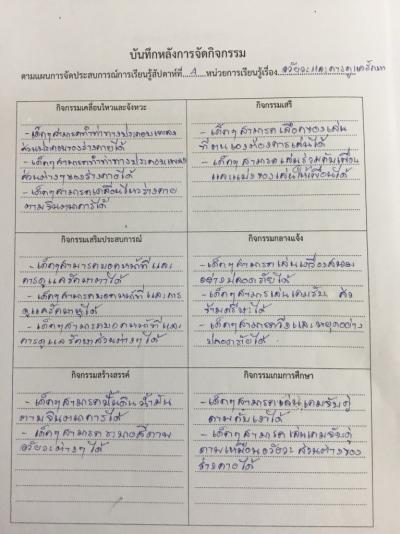 บันทึกหลังการจัดกิจกรรม
ตามแผนการจัดประสบการณ์การเรียนรู้สัปดาห์ที่ 4 หน่วยการเรียนรู้เรื่อง อวัยวะและการดูแลรักษา
กิจกรรมเคลื่อนไหวและจังหวะ
- เด็กๆสามารถทำท่าทางประกอบเพลง
ส่วนประกอบของร่างกายได้
- เด็กๆสามารถทำท่าทางประกอบเพลง
ส่วนต่างๆของร่างกายได้
- เด็กๆสามารถเคลื่อนไหวร่างกาย
ตามจินตนาการได้
กิจกรรมเสรี
- เด็กๆสามารถเลือกของเล่น
ที่ตนเองต้องการเล่นได้
- เด็กๆสามารถเล่นร่วมกับเพื่อน
และแบ่งของเล่นให้เพื่อนได้
กิจกรรมเสริมประสบการณ์
- เด็กๆสามารถบอกหน้าที่และ
การดูแลรักษาตาได้
- เด็กๆสามารถบอกหน้าที่และการ
ดูแลรักษาหูได้
- เด็กๆสามารถบอกหน้าที่และ
การดูแลรักษาส่วนต่างๆได้
กิจกรรมกลางแจ้ง
- เด็กๆสามารถเล่นเครื่องสนาม
อย่างปลอดภัยได้
- เด็กๆสามารถเล่นเกมรับ ส่ง
ข้ามศรีษะได้
- เด็กๆสามารถวิ่งและหยุดอย่าง
ปลอดภัยได้
กิจกรรมสร้างสรรค์
- เด็กๆสามารถปั้นดินน้ำมัน
ตามจินตนาการได้
- เด็กๆสามารถระบายสีภาพ
อวัยวะต่างๆได้
กิจกรรมเกมการศึกษา
- เด็กๆสามารถเล่นเกมจับคู่
ภาพกับเงาได้
- เด็กๆสามารถเล่นเกมจับคู่
ภาพเหมือนอวัยวะส่วนต่างของ
ร่างกายได้